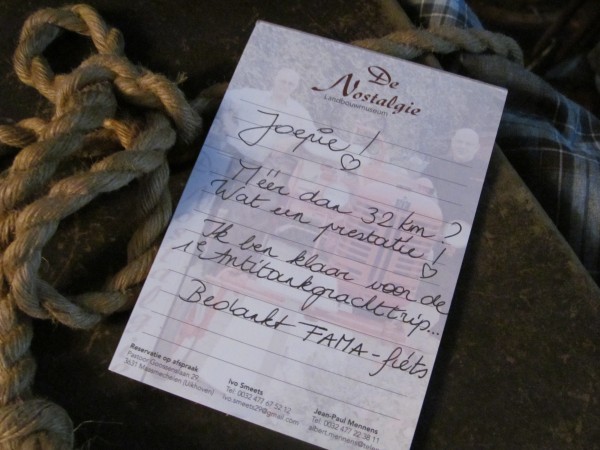 De
Nostalgie
Landbouwmuseum
Joepie! ♡
Méér dan 32 km?
Wat un prestatie! ♡
Ik ben klaar voor de
1e Antitankgrachttrip...
Bedankt FAMA-fiéts
Reservatie op afspraak
Pastoor
3631 Maasmechelen (Uikhoven)
Ivo Smeets
Tel. 0032 477 67 52 12
Ivo.smeets29@gmail.com
Jean-Paul Mennens
Tel. 0032 477 22 38 11
albert-mennens@telen